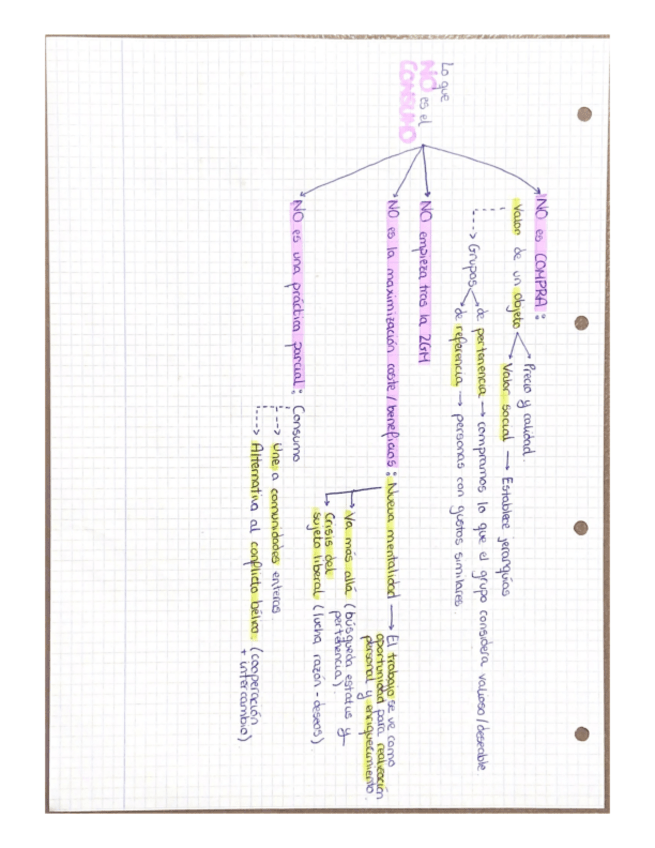 Lo que
NO es el
CONSUMO
NO es COMPRA:
Valor de un objeto
Precio y calidad.
Valor social → Establece jerarquías
Grupos
de pertenencia → compramos lo que el grupo considera valioso/deseable
de referencia → personas con gustos similares.
NO empieza tras la 2GM
NO es la maximización coste/beneficios: Nueva mentalidad → El trabajo se ve como
oportunidad para realización
personal y enriquecimiento.
Va más allá (búsqueda estatus y
pertenencia)
Crisis del
sujeto liberal (lucha razón - deseos)
NO es una práctica parcial: Consumo
Une a comunidades enteras.
Alternativa al conflicto bélico. (cooperación
+ intercambio)